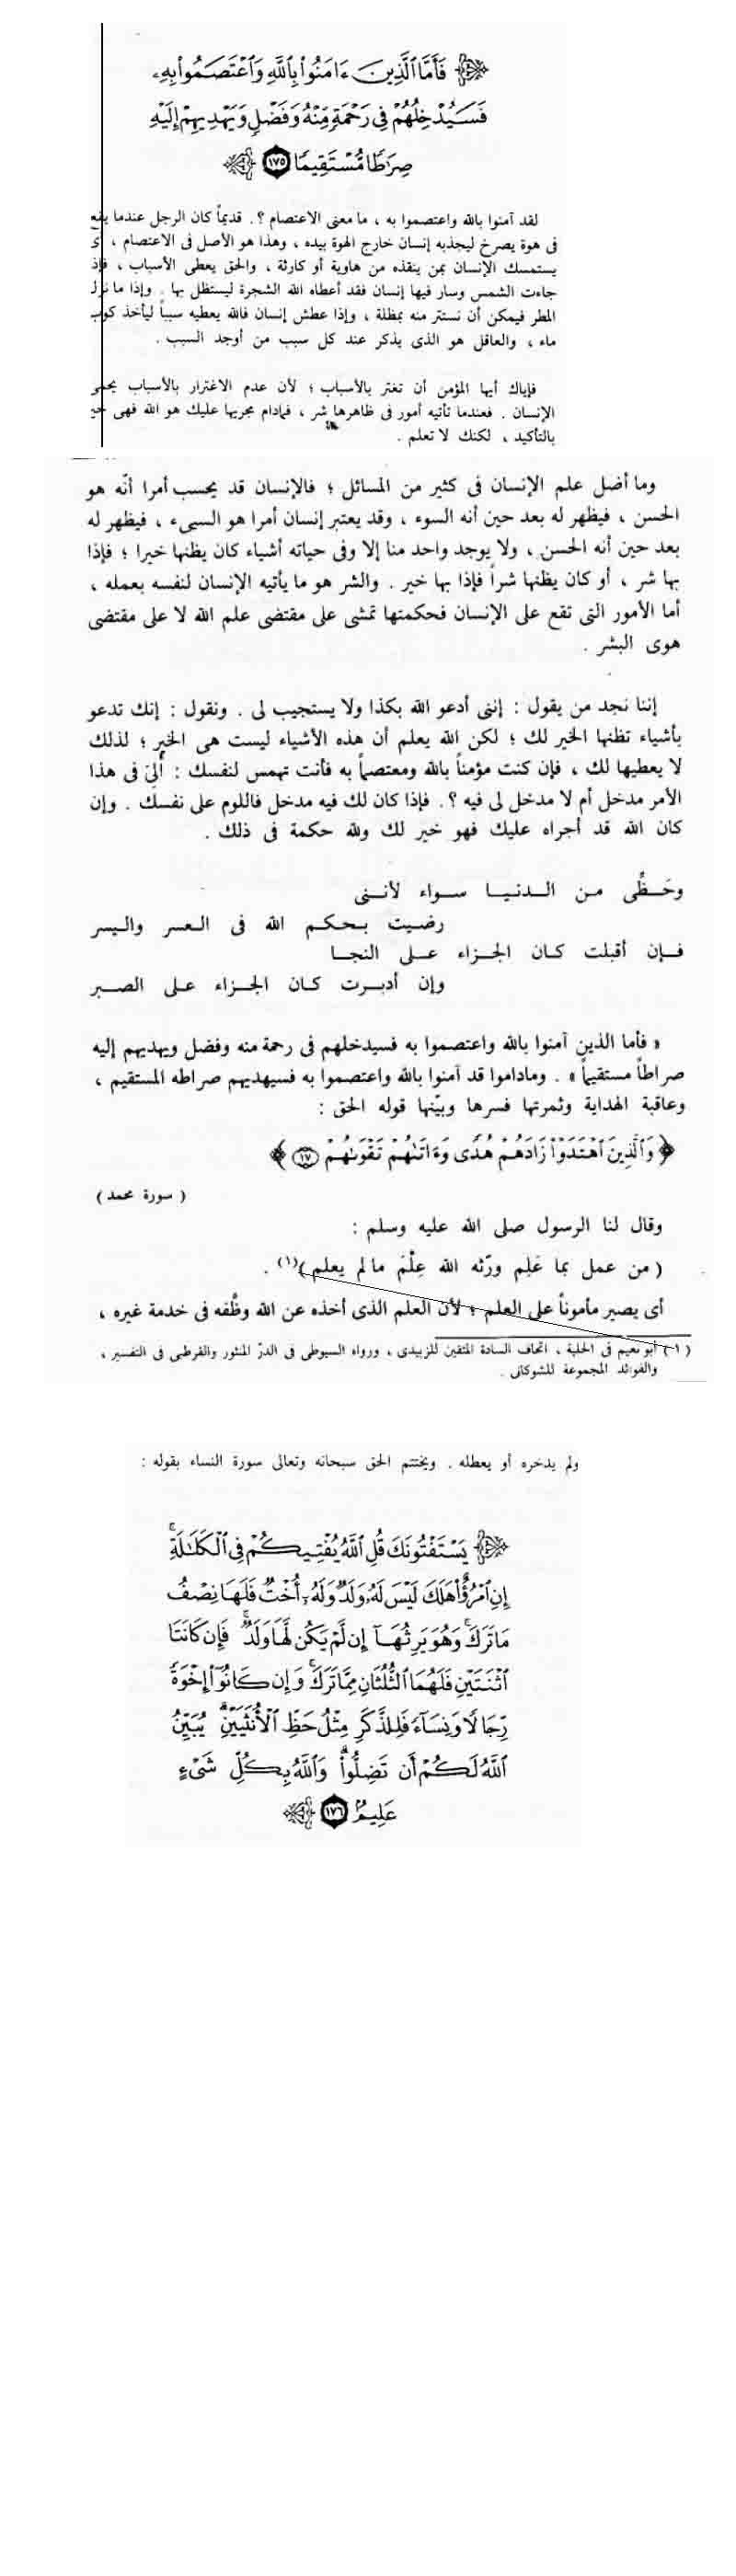 فَأَمَّا ٱلَّذِينَ ءَامَنُوا۟ بِٱللَّهِ وَٱعْتَصَمُوا۟ بِهِۦ
فَسَيُدْخِلُهُمْ فِى رَحْمَةٍ مِّنْهُ وَفَضْلٍ وَيَهْدِيهِمْ إِلَيْهِ
صِرَٰطًا مُّسْتَقِيمًا ١٧٥
لقد آمنوا بالله واعتصموا به ، ما معنى الاعتصام ؟. قديماً كان الرجل عندما يقع
فى هوة يصرخ ليجذبه إنسان خارج الهوة بيده ، وهذا هو الأصل فى الاعتصام ،
يستمسك الإنسان بمن ينقذه من هاوية أو كارثة ، والحق يعطى الأسباب ، فإذ
جاءت الشمس وسار فيها إنسان فقد أعطاه الله الشجرة ليستظل بها . وإذا ما نزل
المطر فيمكن أن نستتر منه بمظلة ، وإذا عطش إنسان فالله يعطيه سبباً ليأخذ كوب
ماء ، والعاقل هو الذى يذكر عند كل سبب من أوجد السبب .
فإياك أيها المؤمن أن تغتر بالأسباب ؛ لأن عدم الاغترار بالأسباب يحمى
الإنسان . فعندما تأتيه أمور فى ظاهرها شر ، فمادام مجريها عليك هو الله فهى خير
بالتأكيد ، لكنك لا تعلم .
وما أضل علم الإنسان فى كثير من المسائل ؛ فالإنسان قد يحسب أمرا أنّه هو
الحسن ، فيظهر له بعد حين أنه السوء ، وقد يعتبر إنسان أمرا هو السيىء ، فيظهر له
بعد حين أنه الحسن ، ولا يوجد واحد منا إلا وفى حياته أشياء كان يظنها خيرا ؛ فإذا
بها شر ، أو كان يظنها شراً فإذا بها خير . والشر هو ما يأتيه الإنسان لنفسه بعمله ،
أما الأمور التى تقع على الإنسان فحكمتها تمشى على مقتضى علم الله لا على مقتضى
هوى البشر .
إننا نجد من يقول : إننى أدعو الله بكذا ولا يستجيب لى . ونقول : إنك تدعو
بأشياء تظنها الخير لك ؛ لكن الله يعلم أن هذه الأشياء ليست هى الخير ؛ لذلك
لا يعطيها لك ، فإن كنت مؤمناً بالله ومعتصماً به فأنت تهمس لنفسك : ألى فى هذا
الأمر مدخل أم لا مدخل لى فيه ؟. فإذا كان لك فيه مدخل فاللوم على نفسك . وإن
كان الله قد أجراه عليك فهو خير لك ولله حكمة فى ذلك .
وحَظِّى من الدنيا سواء لأننى
رضيت بحكم الله فى العسر واليسر
فإن أقبلت كان الجزاء على النجا
وإن أدبرت كان الجزاء على الصبر
« فأما الذين آمنوا بالله واعتصموا به فسيدخلهم فى رحمة منه وفضل ويهديهم إليه
صراطاً مستقيماً » . وماداموا قد آمنوا بالله واعتصموا به فسيهديهم صراطه المستقيم ،
وعاقبة الهداية وثمرتها فسرها وبيّنها قوله الحق :
﴿ وَٱلَّذِينَ ٱهْتَدَوْا۟ زَادَهُمْ هُدًى وَءَاتَىٰهُمْ تَقْوَىٰهُمْ ١٧ ﴾
( سورة محمد )
وقال لنا الرسول صلى الله عليه وسلم :
( من عمل بما عَلِم ورّثه الله عِلْمَ مالم يعلم )(١) .
أى يصير مأموناً على العلم ؛ لأن العلم الذى أخذه عن الله وظَّفه فى خدمة غيره ،
( ١ ) أبو نعيم فى الحلية ، اتحاف السادة المتقين للزبيدى ، ورواه السيوطى فى الدرّ المنثور والقرطبى فى التفسير ،
والفوائد المجموعة للشوكانى .
ولم يدخره أو يعطله . ويختتم الحق سبحانه وتعالى سورة النساء بقوله :
يَسْتَفْتُونَكَ قُلِ ٱللَّهُ يُفْتِيكُمْ فِى ٱلْكَلَٰلَةِ ۚ
إِنِ ٱمْرُؤٌا۟ هَلَكَ لَيْسَ لَهُۥ وَلَدٌ وَلَهُۥٓ أُخْتٌ فَلَهَا نِصْفُ
مَا تَرَكَ ۚ وَهُوَ يَرِثُهَآ إِن لَّمْ يَكُن لَّهَا وَلَدٌ ۚ فَإِن كَانَتَا
ٱثْنَتَيْنِ فَلَهُمَا ٱلثُّلُثَانِ مِمَّا تَرَكَ ۚ وَإِن كَانُوٓا۟ إِخْوَةً
رِّجَالًا وَنِسَآءً فَلِلذَّكَرِ مِثْلُ حَظِّ ٱلْأُنثَيَيْنِ ۗ يُبَيِّنُ
ٱللَّهُ لَكُمْ أَن تَضِلُّوا۟ ۗ وَٱللَّهُ بِكُلِّ شَىْءٍ
عَلِيمٌۢ ١٧٦